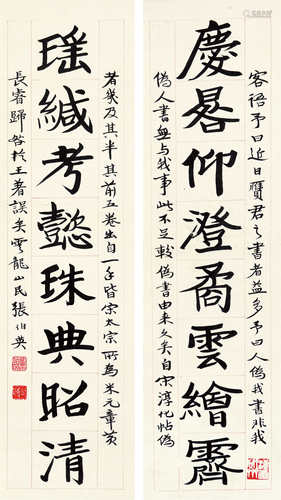 客語予曰近日賣君之書者益多予曰人偽我書非我
慶晷仰澄矞雲繪霽
偽人書無与我事此不足較偽書由来久矣自宋淳化帖偽
者幾及其半其前五卷出自一手皆宋太宗所為米元章黃
瑤緘考懿珠典昭清
長睿歸咎於王著誤矣雲龍山民張伯英